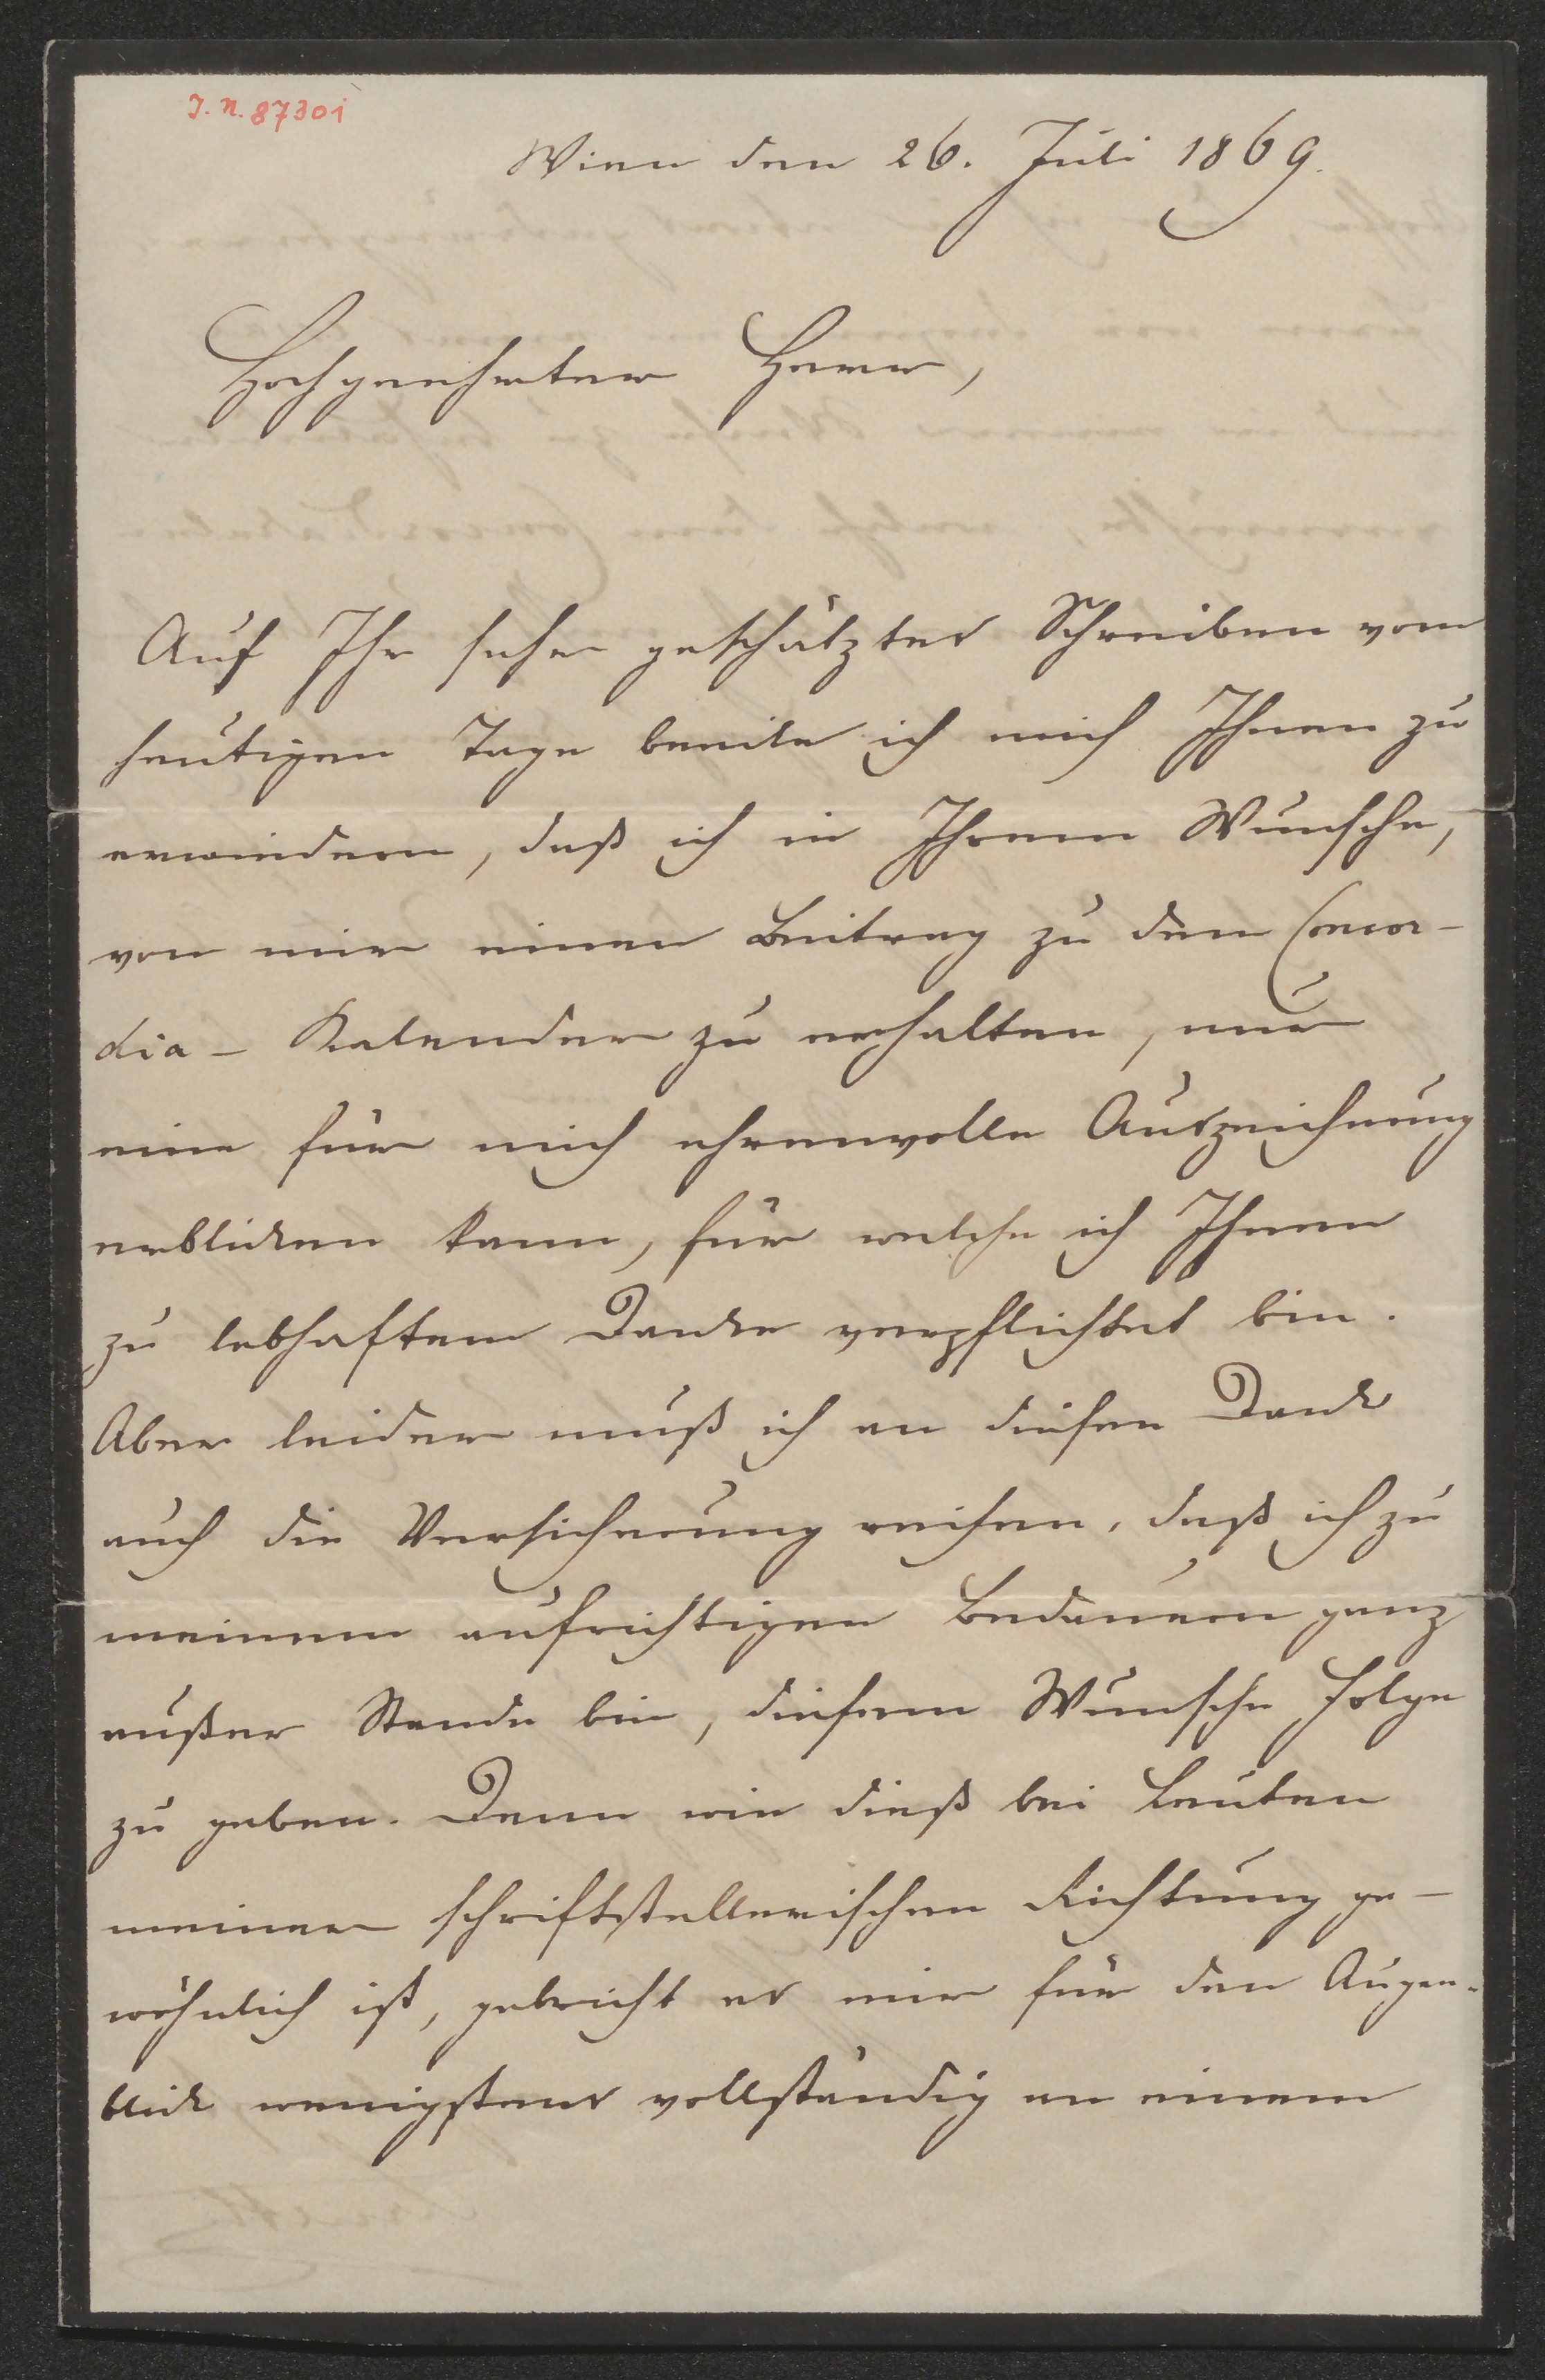 J. N. 87301
Wien den 26. Juli 1869.
Hochgeehrter Herr,
Auf Ihr sehr geschätztes Schreiben vom
heutigen Tage beeile ich mich Ihnen zu
erwiedern, daß ich in Ihrem Wunsche,
von mir einen Beitrag zu dem Concor-
dia- Kalender zu erhalten, nur
eine für mich ehrenvolle Auszeichnung
erblicken kann, für welche ich Ihnen
zu lebhaftem Danke verpflichtet bin.
Aber leider muß ich an diesen Dank
auch die Versicherung reihen, daß ich zu
meinem aufrichtigen Bedauern ganz
außer Stande bin, diesem Wunsche Folge
zu geben. Denn wie dieß bei Leuten
meiner schriftstellerischen Richtung ge-
wöhnlich ist, gebricht es mir für den Augen-
blick wenigstens vollständig an einem